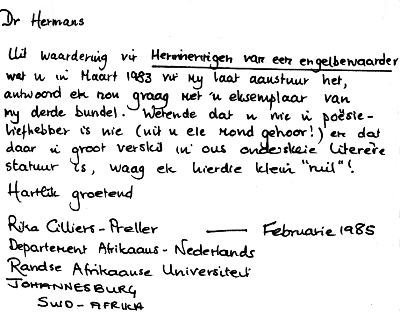 Dr Hermans
Uit waardering vir Herinneringen van een engelbewaarder
wat u in Maart 1983 vir my laat aanstuur het,
antwoord ek nou graag met 'n eksemplaar van
my derde bundel. Wetende dat u nie 'n poësie-
liefhebber is nie (uit u eie mond gehoor!) en dat
daar 'n groot verskil in ons onderskeie literêre
statuur is, waag ek hierdie klein "ruil"!
Hartlik groetend
Rika Cilliers-Preller — Februarie 1985
Departement Afrikaans-Nederlands
Randse Afrikaanse Universiteit
JOHANNESBURG
SUID-AFRIKA